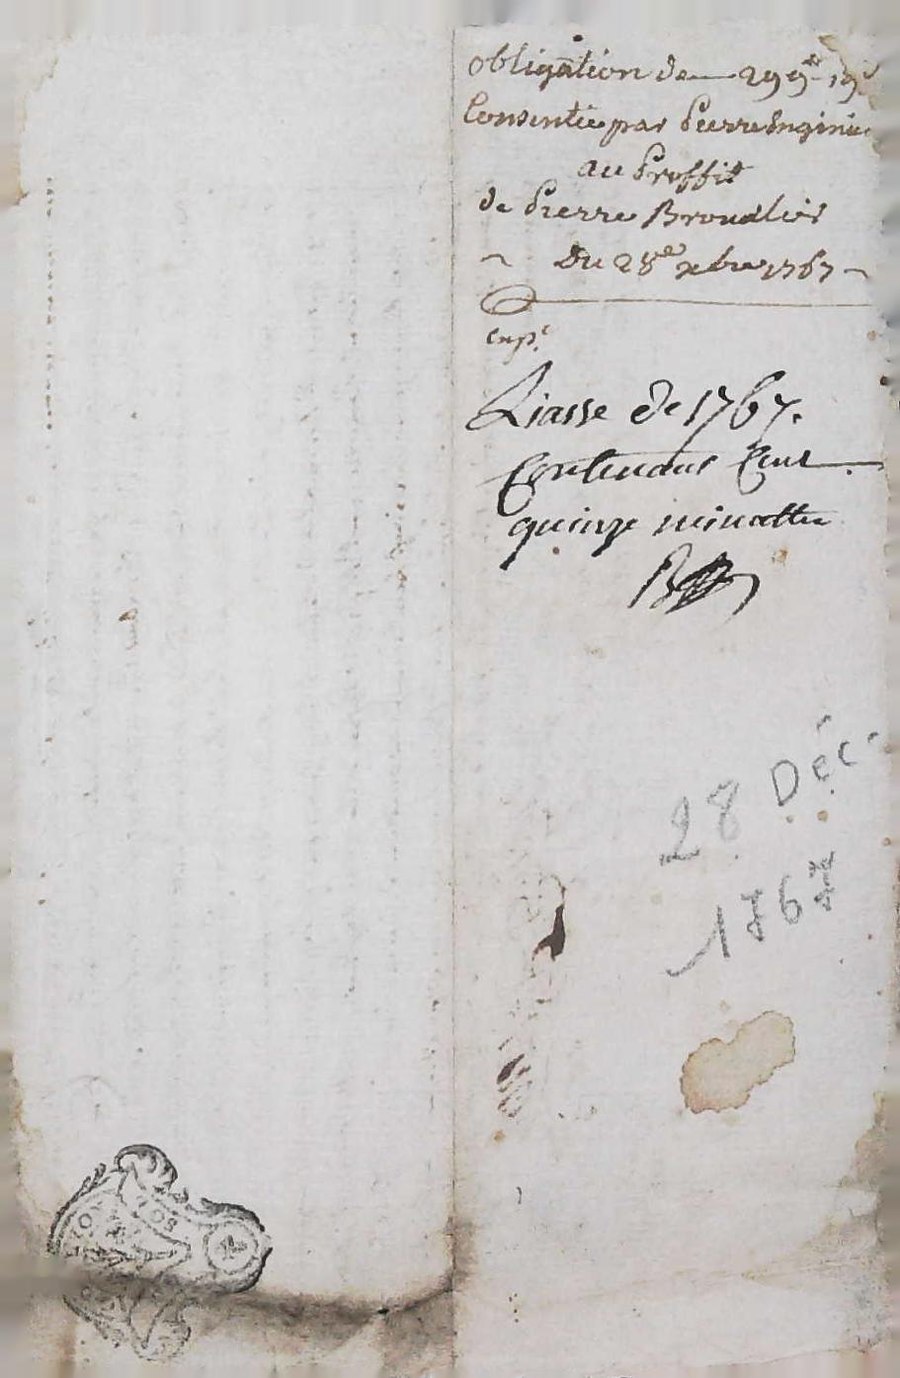 obligation de 299# 19s
Consentie par Pierre Enginie
au Proffit
de Pierre Broualier
Du 28e xbre 1767
exp.
Liasse de 1767.
Contenant Cent
quinze minuttes
28 Déc.
1767
SOS